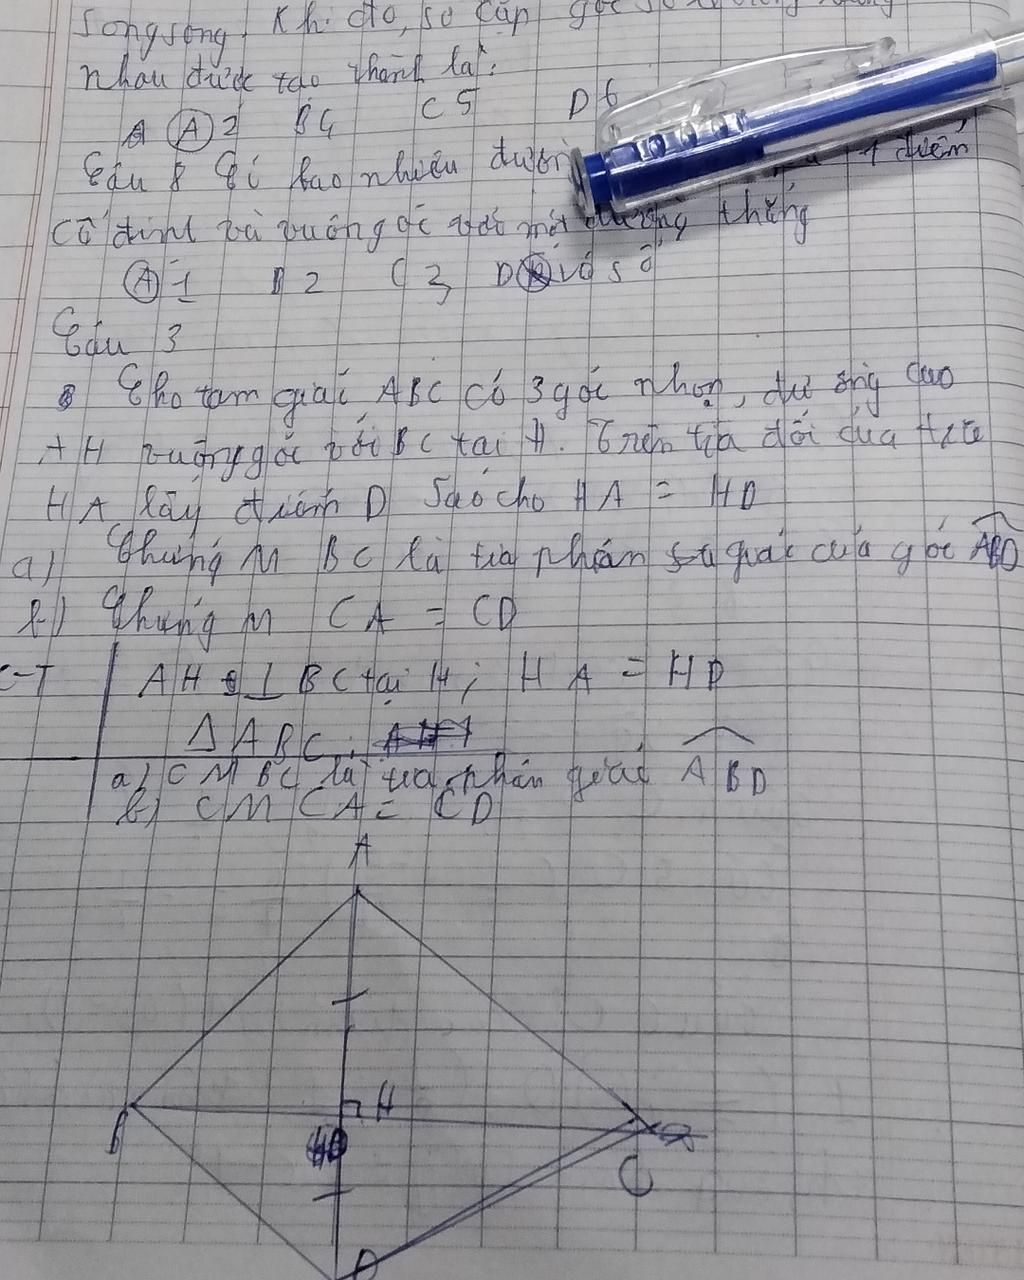 songsong. Khi đó, số cặp góc so
nhau được tạo thành là:
A 2 B 4 C 5 D 6
Câu 8 Có bao nhiêu đường 1 điểm
cố định và vuông góc với một đường thẳng
A 1 B 2 C 3 D vô số
Câu 3
Cho tam giác ABC có 3 góc nhọn, đường cao
AH vuông góc với BC tại H. Trên tia đối của tia
HA lấy điểm D sao cho HA = HD
a) Chứng M BC là tia phân giác của góc ABD
b) Chứng m CA = CD
AH ⊥ BC tại H; HA = HD
∆ ABC
a) CM BC là tia phân giác ABD
b) CM CA = CD
A
B
H
C
D